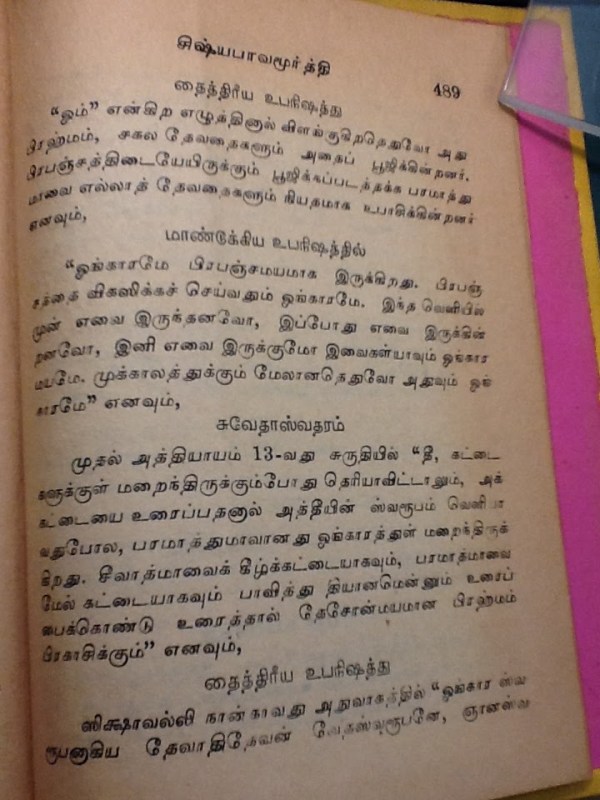 சிஷ்யபாவமூர்த்தி
489
தைத்திரீய உபநிஷத்து
“ஓம்” என்கிற எழுத்தினால் விளக்குகிறதெதுவோ அது
பிரஹ்மம், சகல தேவதைகளும் அதைப் பூஜிக்கின்றனர்.
பிரபஞ்சத்திடையேயிருக்கும் பூஜிக்கப்படத்தக்க பரமாத்து
மாவை எல்லாத் தேவதைகளும் நியதமாக உபாசிக்கின்றனர்
எனவும்,
மாண்டுக்கிய உபநிஷத்தில்
“ஓங்காரமே பிரபஞ்சமயமாக இருக்கிறது. பிரபஞ்
சத்தை விகஸிக்கச் செய்வதும் ஓங்காரமே. இந்த வெளியில்
முன் எவை இருந்தனவோ, இப்போது எவை இருக்கின்
றனவோ, இனி எவை இருக்குமோ இவைகள்யாவும் ஓங்கார
மயமே. முக்காலத்துக்கும் மேலானதெதுவோ அதுவும் ஓங்
காரமே” எனவும்,
சுவேதாஸ்வதரம்
முதல் அத்தியாயம் 13-வது சுருதியில் “தீ, கட்டை
களுக்குள் மறைந்திருக்கும்போது தெரியாவிட்டாலும், அக்
கட்டையை உரைப்பதனால் அத்தீயின் ஸ்வரூபம் வெளியா
வதுபோல, பரமாத்துமாவானது ஓங்காரத்துள் மறைந்திருக்
கிறது. சீவாத்மாவைக் கீழ்க்கட்டையாகவும், பரமாத்மாவை
மேல் கட்டையாகவும் பாவித்து தியானமென்னும் உரைப்
பைக்கொண்டு உரைத்தால் தேசோன்மயமான பிரஹ்மம்
பிரகாசிக்கும்” எனவும்,
தைத்திரீய உபநிஷத்து
ஸிக்ஷாவல்லி நான்காவது அதுவாகத்தில் “ஓங்கார ஸ்வ
ரூபனாகிய தேவாதிதேவன் வேதஸ்வரூபனே, ஞானஸ்வ